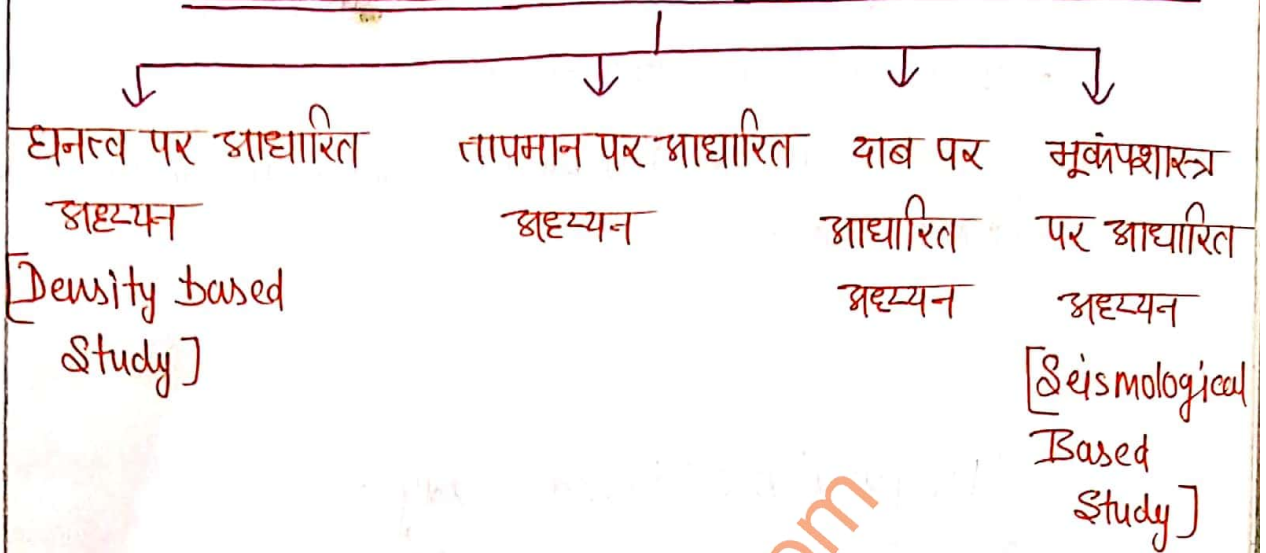 घनत्व पर आधारित
अध्ययन
[Density based
Study]
तापमान पर आधारित
अध्ययन
दाब पर
आधारित
अध्ययन
भूकंपशास्त्र
पर आधारित
अध्ययन
[Seismological
Based
Study]
om